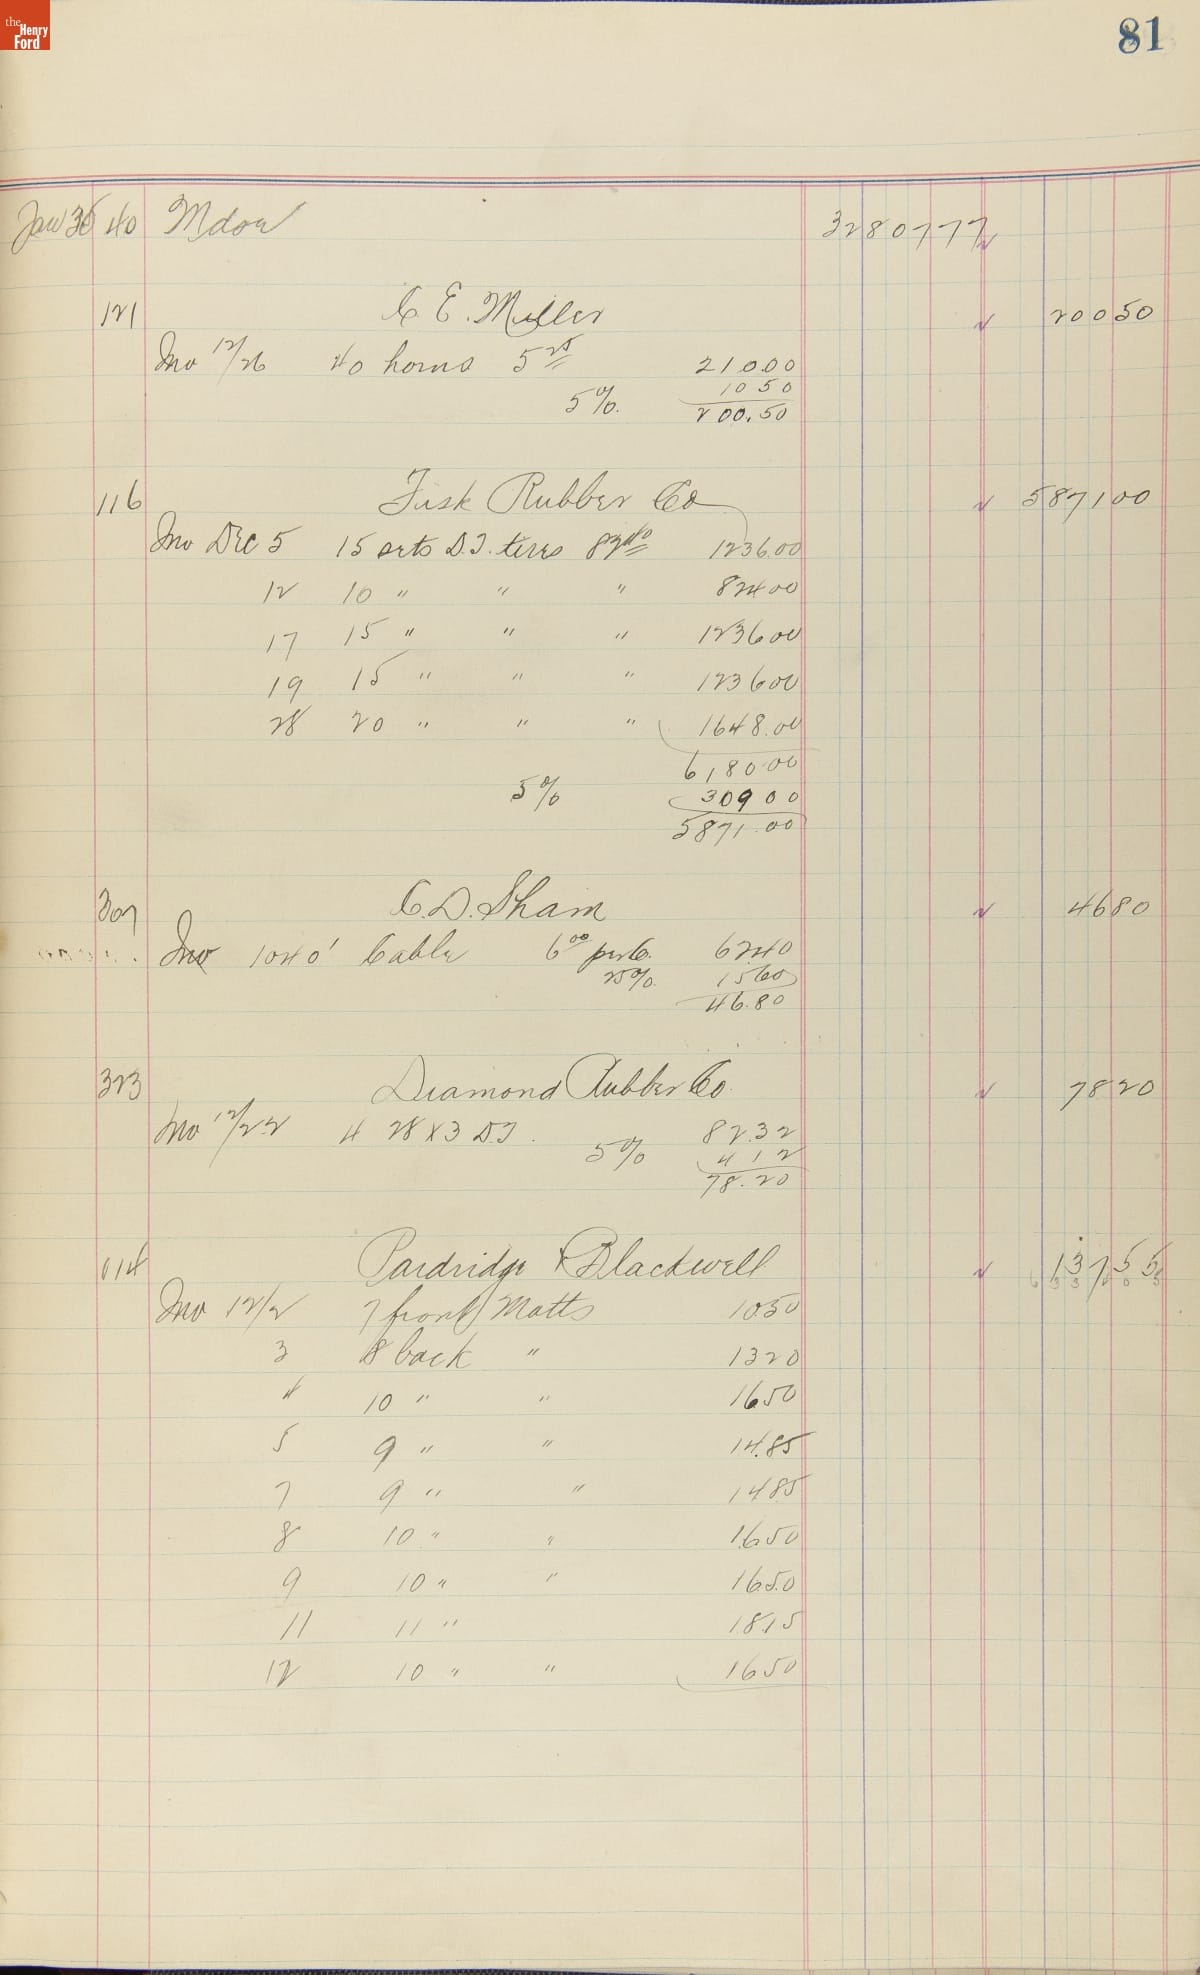 the
Henry
Ford
81
Jan 30 40 Mdse 32807 77
121 C E. Miller 200 50
Inv 12/26 40 horns 5 25 210.00
10 50
5% 200.50
116 Fisk Rubber Co 5871 00
Inv Dec 5 15 sets D.T. tires 82 40 1236.00
12 10 " " " 824 00
17 15 " " " 1236 00
19 15 " " " 1236 00
28 20 " " " 1648.00
6180 00
5% 309 00
5871.00
307 C.D. Sham 46 80
Inv 1040' Cable 6 00 per C. 62 40
25% 15 60
46.80
323 Diamond Rubber Co. 78 20
Inv 12/22 4 28 x 3 D.T. 82.32
5% 4 12
78.20
614 Pardridge & Blackwell 137 55
Inv 12/2 7 front Matts 10 50
3 8 back " 13 20
4 10 " " 16 50
5 9 " " 14.85
7 9 " " 14 85
8 10 " " 16 50
9 10 " " 16.50
11 11 " 18.15
12 10 " " 16 50